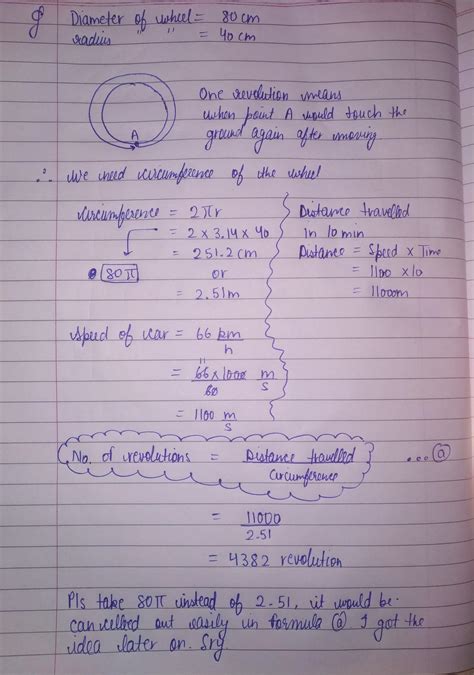 Diameter of wheel = 80 cm
radius " " = 40 cm
One revolution means
when point A would touch the
ground again after moving
A
∴ We need circumference of the wheel
circumference = 2πr
= 2 x 3.14 x 40
= 251.2 cm
80π or
= 2.51 m
Distance travelled
in 10 min
Distance = Speed x Time
= 1100 x 10
= 11000m
Speed of car = 66 km/h
= 66 x 1000/60 m/s
= 1100 m/s
No. of revolutions = Distance travelled/Circumference ...(a)
= 11000/2.51
= 4382 revolution
Pls take 80π instead of 2.51, it would be
cancelled out easily in formula (a). I got the
idea later on. Sry